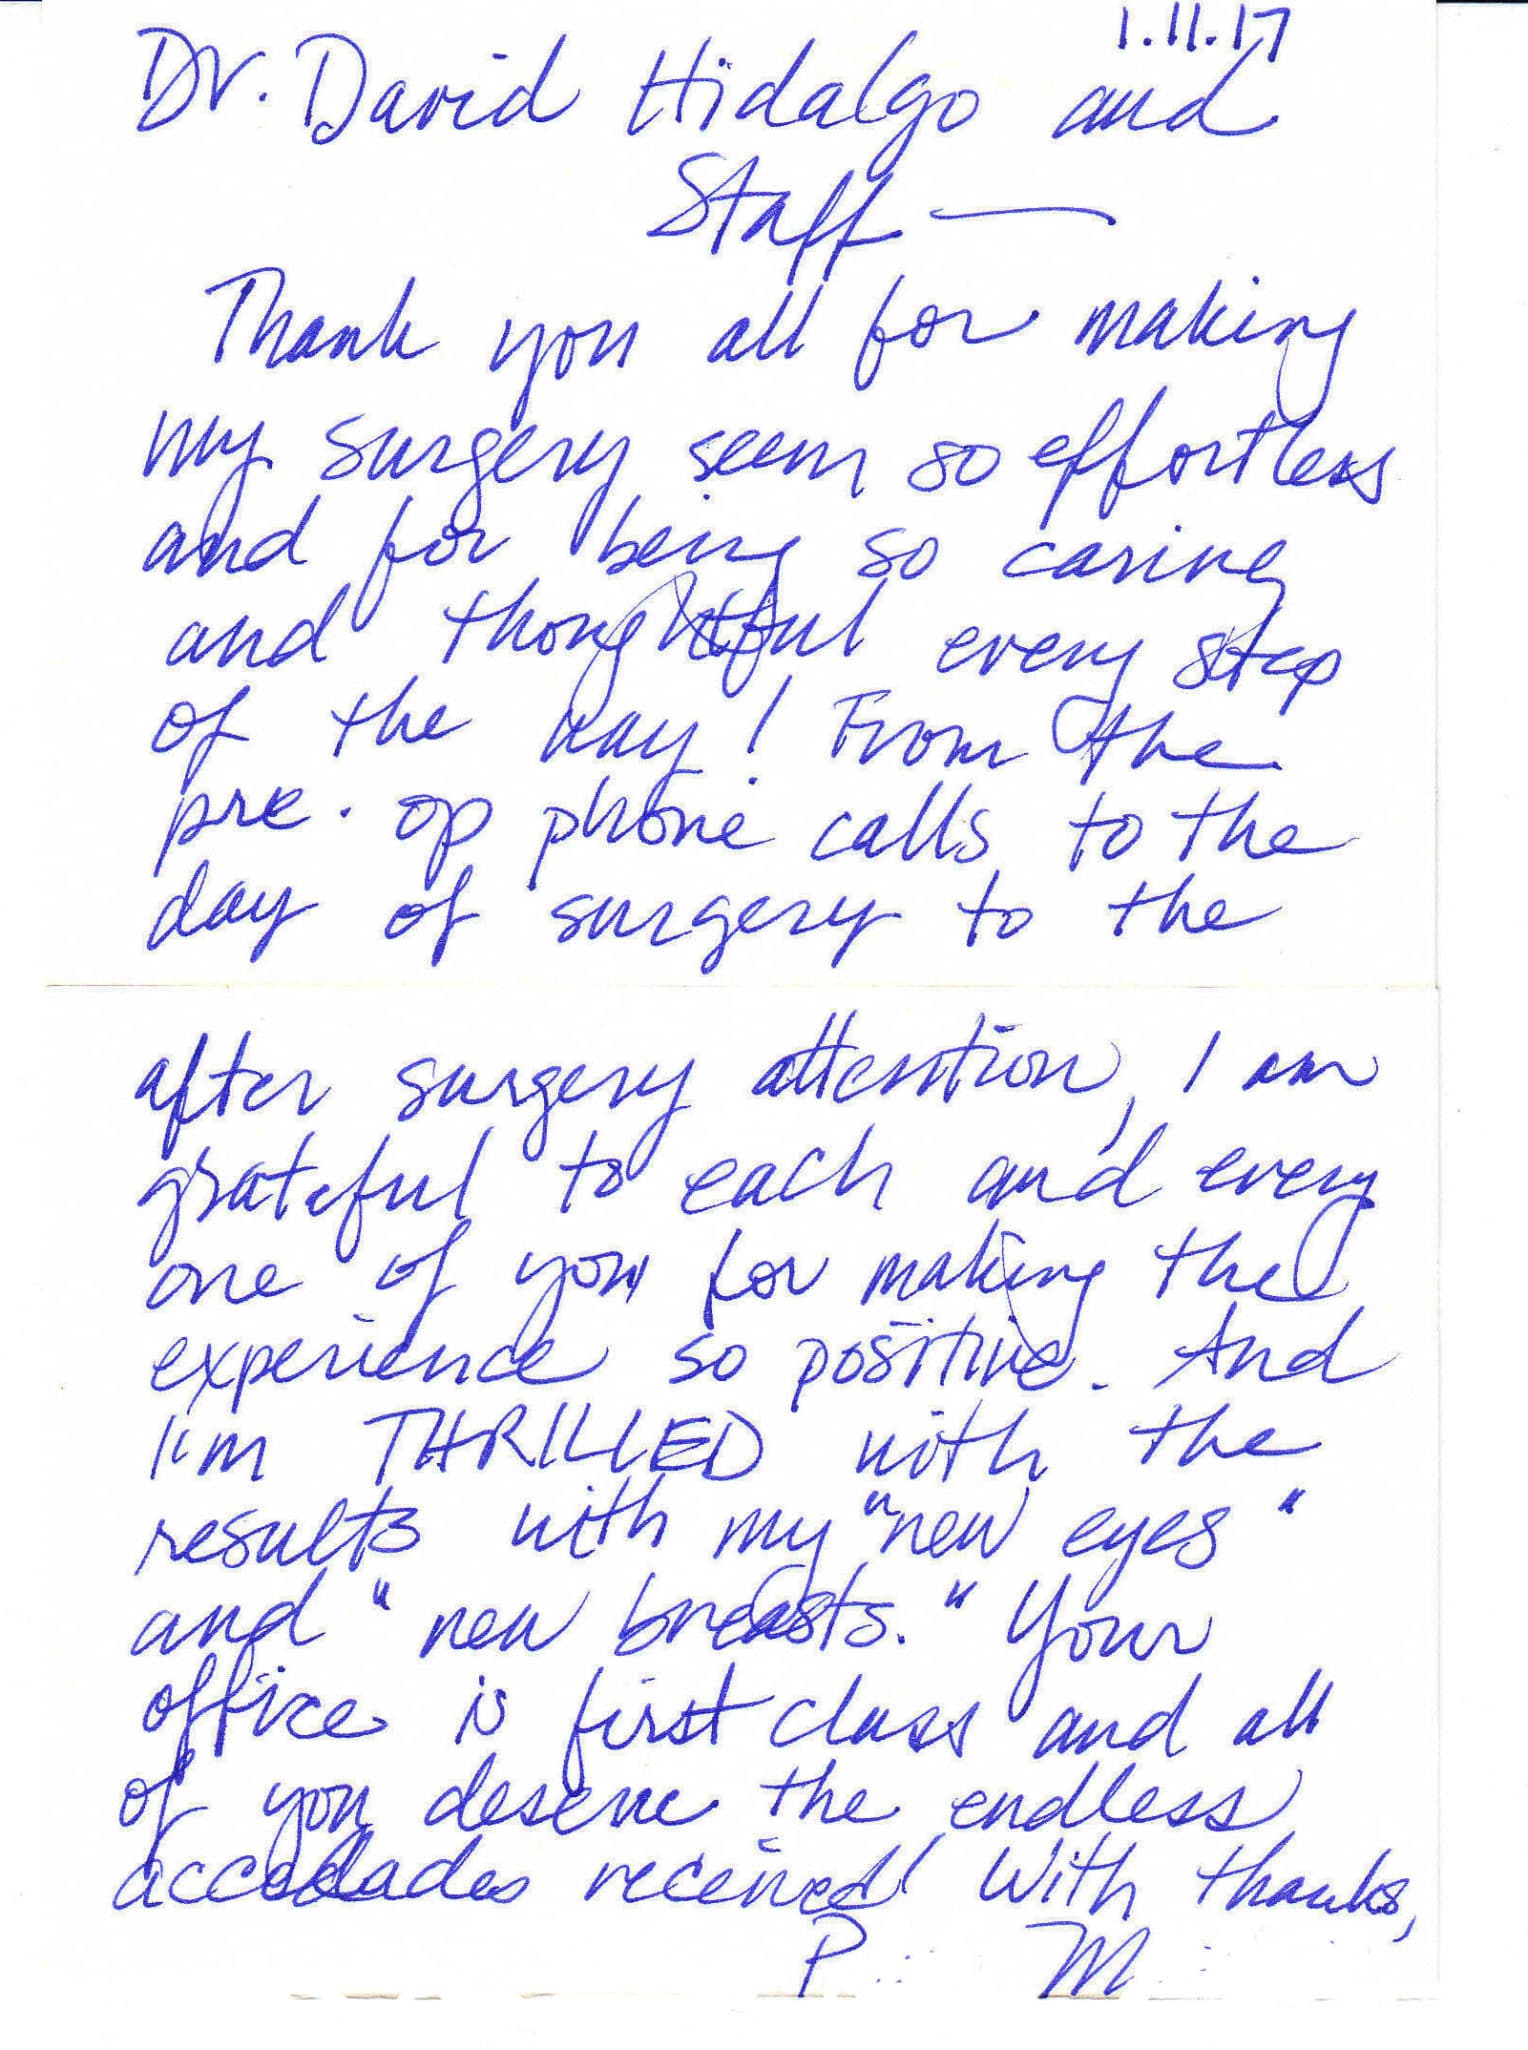 1.11.17
Dr. David Hidalgo and
Staff —
Thank you all for making
my surgery seem so effortless
and for being so caring
and thoughtful every step
of the way! From the
pre. op phone calls to the
day of surgery to the
after surgery attention, I am
grateful to each and every
one of you for making the
experience so positive. And
I'm THRILLED with the
results with my "new eyes"
and "new breasts." Your
office is first class and all
of you deserve the endless
accolades received! With thanks,
P M